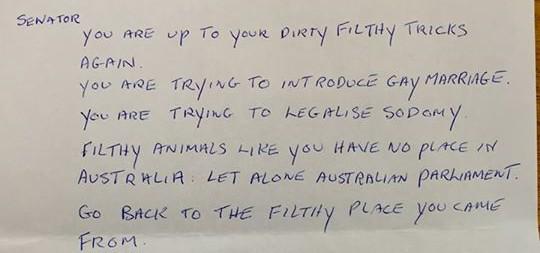 SENATOR
YOU ARE UP TO YOUR DIRTY FILTHY TRICKS
AGAIN.
YOU ARE TRYING TO INTRODUCE GAY MARRIAGE.
YOU ARE TRYING TO LEGALISE SODOMY.
FILTHY ANIMALS LIKE YOU HAVE NO PLACE IN
AUSTRALIA. LET ALONE AUSTRALIAN PARLIAMENT.
GO BACK TO THE FILTHY PLACE YOU CAME
FROM.